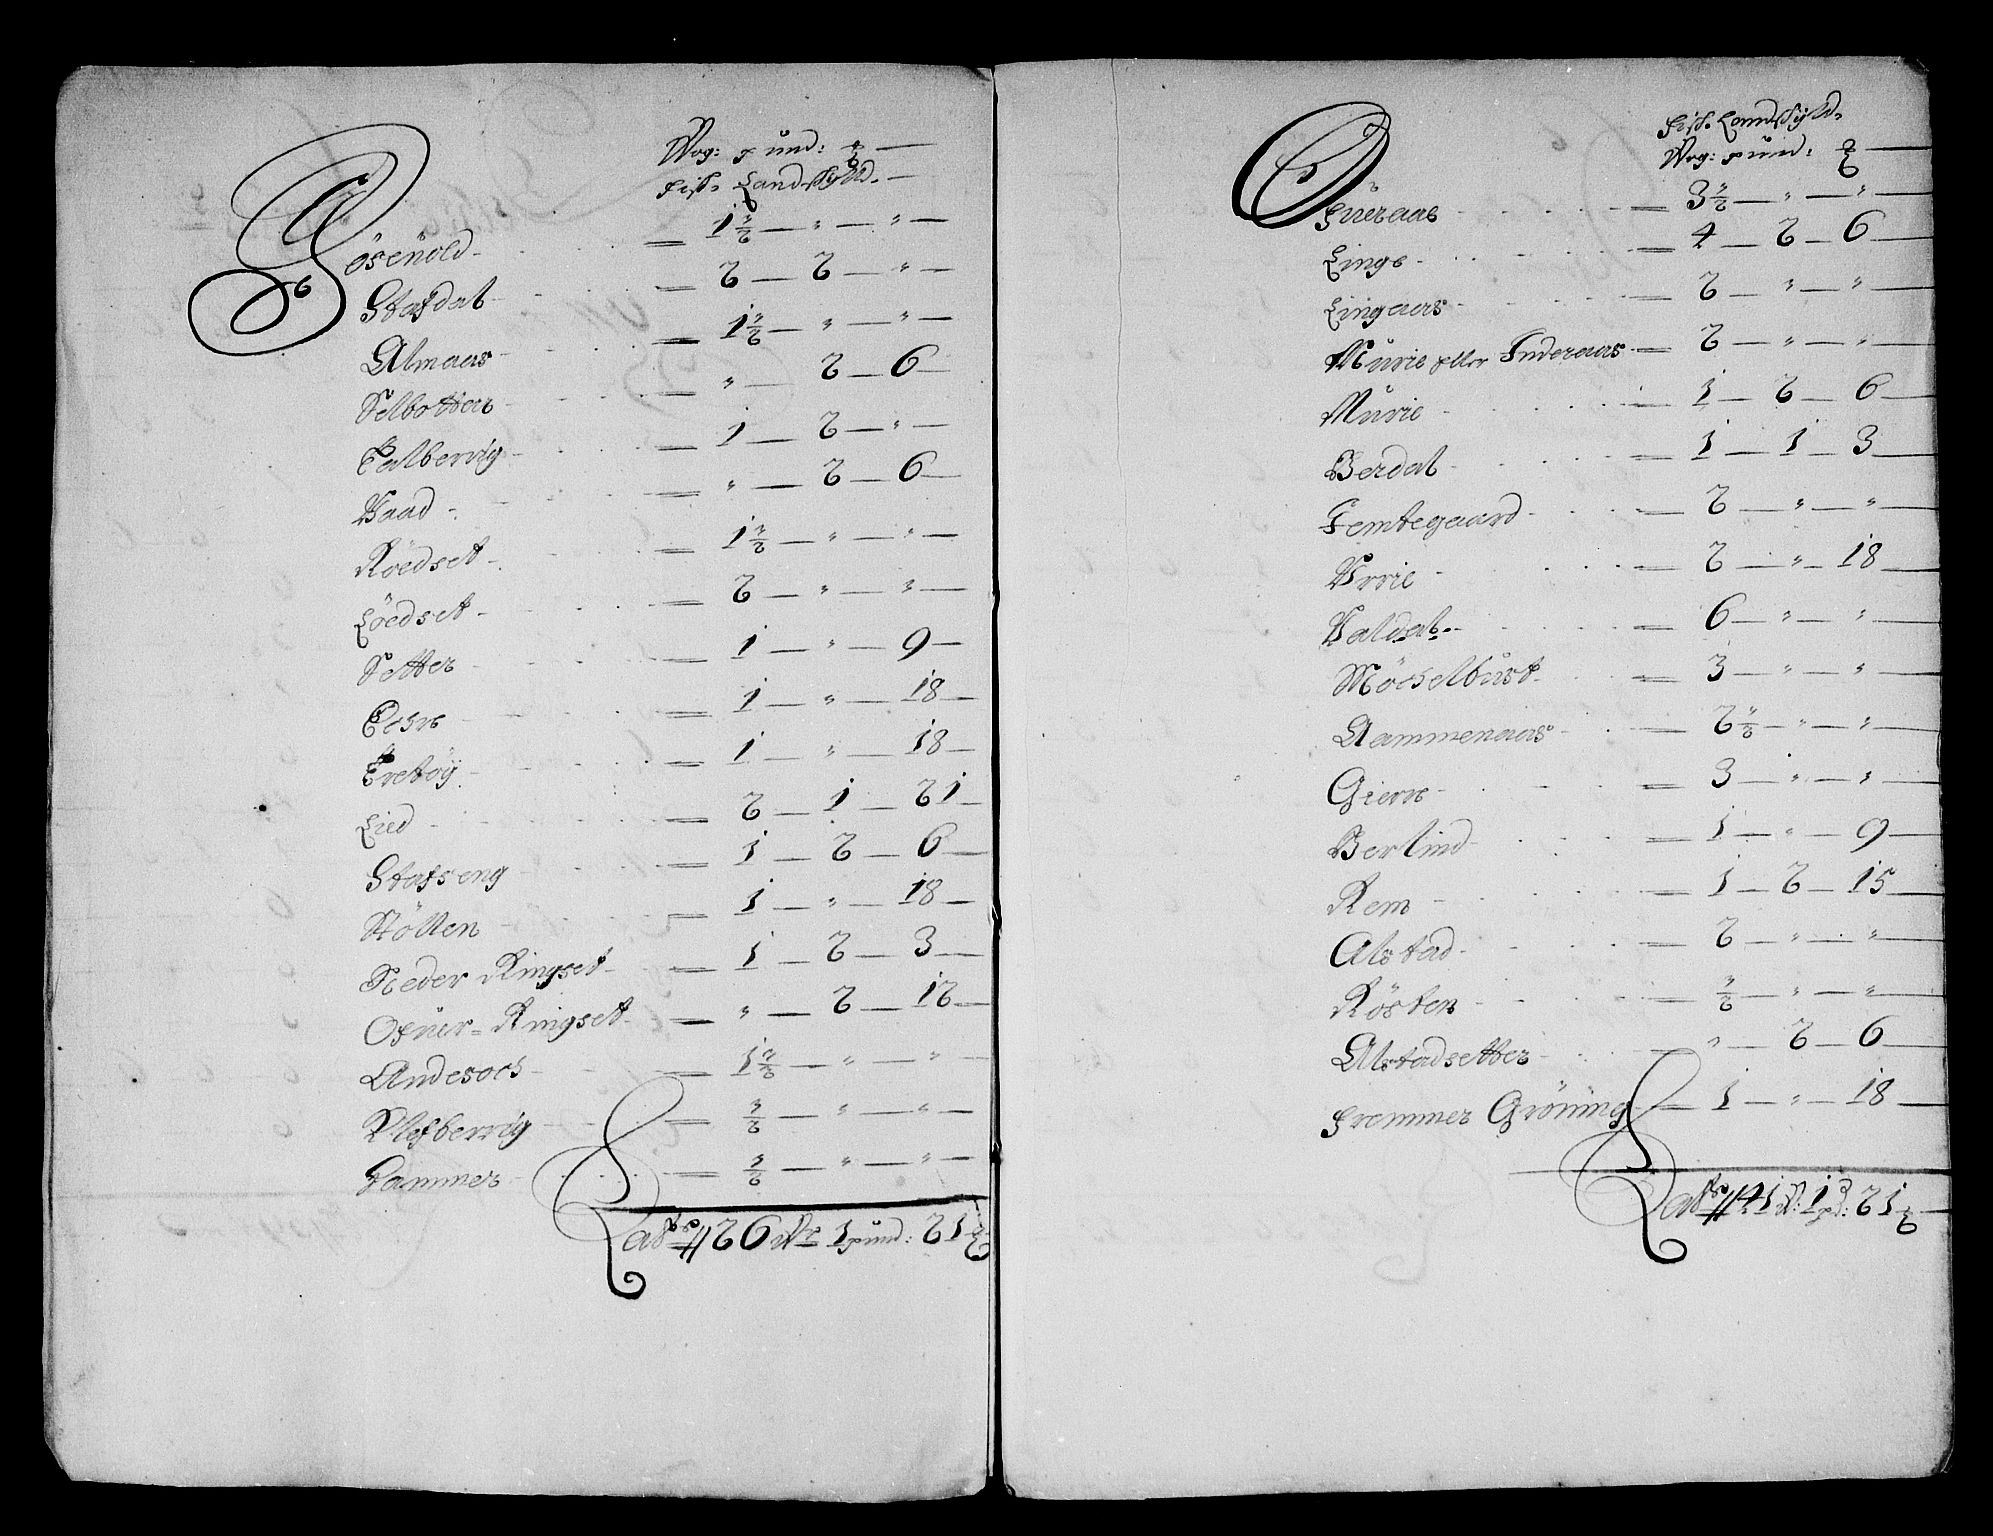 Wog: pund: ℔
Fisk Landskyld.
Gösenöld - 1½ — " — "
Stafdal - 2 — 2 — "
Almaas - 1½ — " — "
Selbotten - " — 2 — 6
Talbervig - 1 — 2 — "
Waad - " — 2 — 6
Röedset - 1½ — " — "
Löedset - 2 — " — "
Setter - 1 — " — 9
Eehre - 1 — " — 18
Tretöÿ - 1 — " — 18
Lied - 2 — 1 — 21
Stafseng - 1 — 2 — 6
Stölten - 1 — " — 18
Neder Ringset - 1 — 2 — 3
Ofuer-Ringset - " — 2 — 12
Andesoch - 1½ — " — "
Klefbervig - ½ — " — "
Hammer - ½ — " — "
Lateris 26 W: 1 pund: 21 ℔
Fisk Landskyld.
Wog: pund: ℔
Ofueraas - 3½ — " — "
Linge - 4 — 2 — 6
Lingaas - 2 — " — "
Mürie eller Inderaas - 2 — " — "
Mürie - 1 — 2 — 6
Berdal - 1 — 1 — 3
Femtegaard - 2 — " — "
Urrie - 2 — " — 18
Waldal - 6 — " — "
Möchelbust - 3 — " — "
Aammenaas - 2½ — " — "
Gierre - 3 — " — "
Berlind - 1 — " — 9
Rem - 1 — 2 — 15
Alstad - 2 — " — "
Rösten - ½ — " — "
Alstadsetter - " — 2 — 6
Fremmer Gröning - 1 — " — 18
Lateris 41 W: 1 pd: 21 ℔